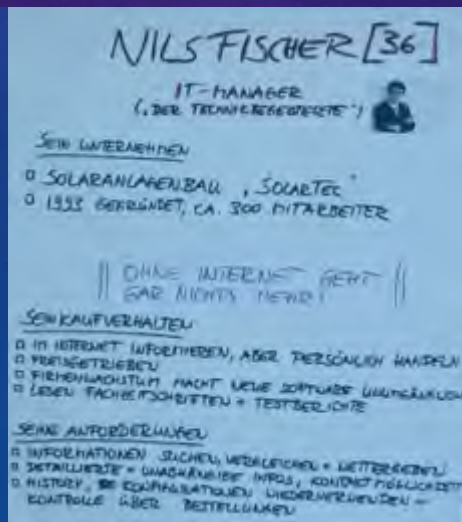 NILS FISCHER [36]
IT-MANAGER
("DER TECHNIKBEGEISTERTE")
SEIN UNTERNEHMEN
SOLARANLAGENBAU "SOLARTEC"
1993 GEGRÜNDET, CA. 300 MITARBEITER
OHNE INTERNET GEHT
GAR NICHTS MEHR!
SEIN KAUFVERHALTEN
IM INTERNET INFORMIEREN, ABER PERSÖNLICH HANDELN
PREISGETRIEBEN
FIRMENWACHSTUM MACHT NEUE SOFTWARE
LESEN FACHZEITSCHRIFTEN + TESTBERICHTE
SEINE ANFORDERUNGEN
INFORMATIONEN SUCHEN, VERGLEICHEN + WEITERGEBEN
DETAILLIERTE + UNABHÄNGIGE INFOS, KONTAKTMÖGLICHKEIT
HISTORY, KONFIGURATIONEN WIEDERVERWENDEN -
KONTROLLE ÜBER BESTELLUNGEN